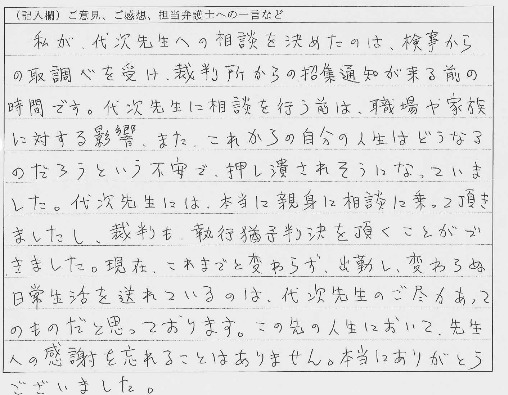 （記入欄）ご意見、ご感想、担当弁護士への一言など
私が、代次先生への相談を決めたのは、検事から
の取調べを受け、裁判所からの招集通知が来る前の
時間です。代次先生に相談を行う前は、職場や家族
に対する影響、また、これからの自分の人生はどうなる
のだろうという不安で、押し潰されそうになっていま
した。代次先生には、本当に親身に相談に乗って頂き
ましたし、裁判も、執行猶予判決を頂くことがで
きました。現在、これまでと変わらず、出勤し、変わらぬ
日常生活を送れているのは、代次先生のご尽力あって
のものだと思っております。この先の人生において、先生
への感謝を忘れることはありません。本当にありがとう
ございました。